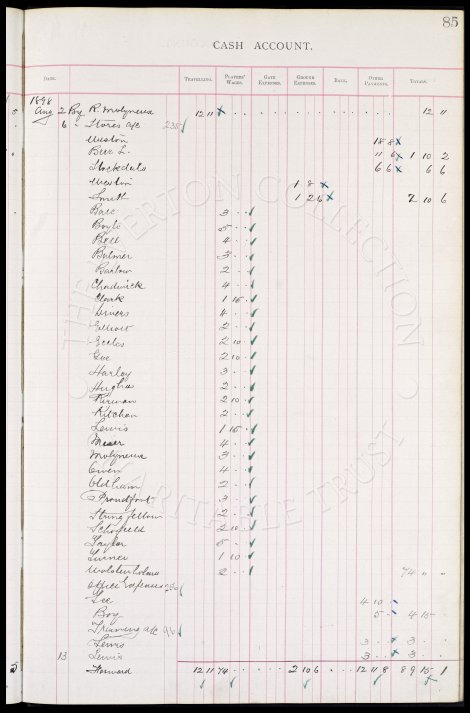 85
CASH ACCOUNT.
DATE. TRAVELLING. PLAYERS' WAGES. GATE EXPENSES. GROUND EXPENSES. BANK. OTHER PAYMENTS. TOTALS.
1898
Aug 2 By R. Molyneux 12 11 12 11
6 " Stores a/c 235
18 8
11 6 1 10 2
Stockdale 6 6 6 6
Newton 1 8
Smith 1 2 6 2 10 6
Ball 3 . .
Boyle 5 . .
Bell 4 . .
Balmer 3 . .
Barlow 2 . .
Chadwick 4 . .
Clark 1 15 .
Divers 4 . .
Elliott 2 . .
Eccles 2 10 .
Gee 2 10 .
Harley 3 . .
Hughes 2 . .
Kirwan 2 10 .
Kitchen 2 . .
Lewis 1 15 .
Meiser 4 . .
Molyneux 3 . .
Owen 4 . .
Oldham 2 . .
Proudfoot 3 . .
Stringfellow 2 . .
Schofield 2 10 .
Taylor 5 . .
Turner 1 10 .
Wolstenholme 2 . . 74 " "
Office Expenses
Lee 4 10 .
Boy 5 . 4 15 .
Training a/c
Lewis 3 . .
13 Lewis 3 . .
Forward 12 11 74 . . 2 10 6 12 11 8 89 15 1
THE EVERTON COLLECTION
CHARITABLE TRUST